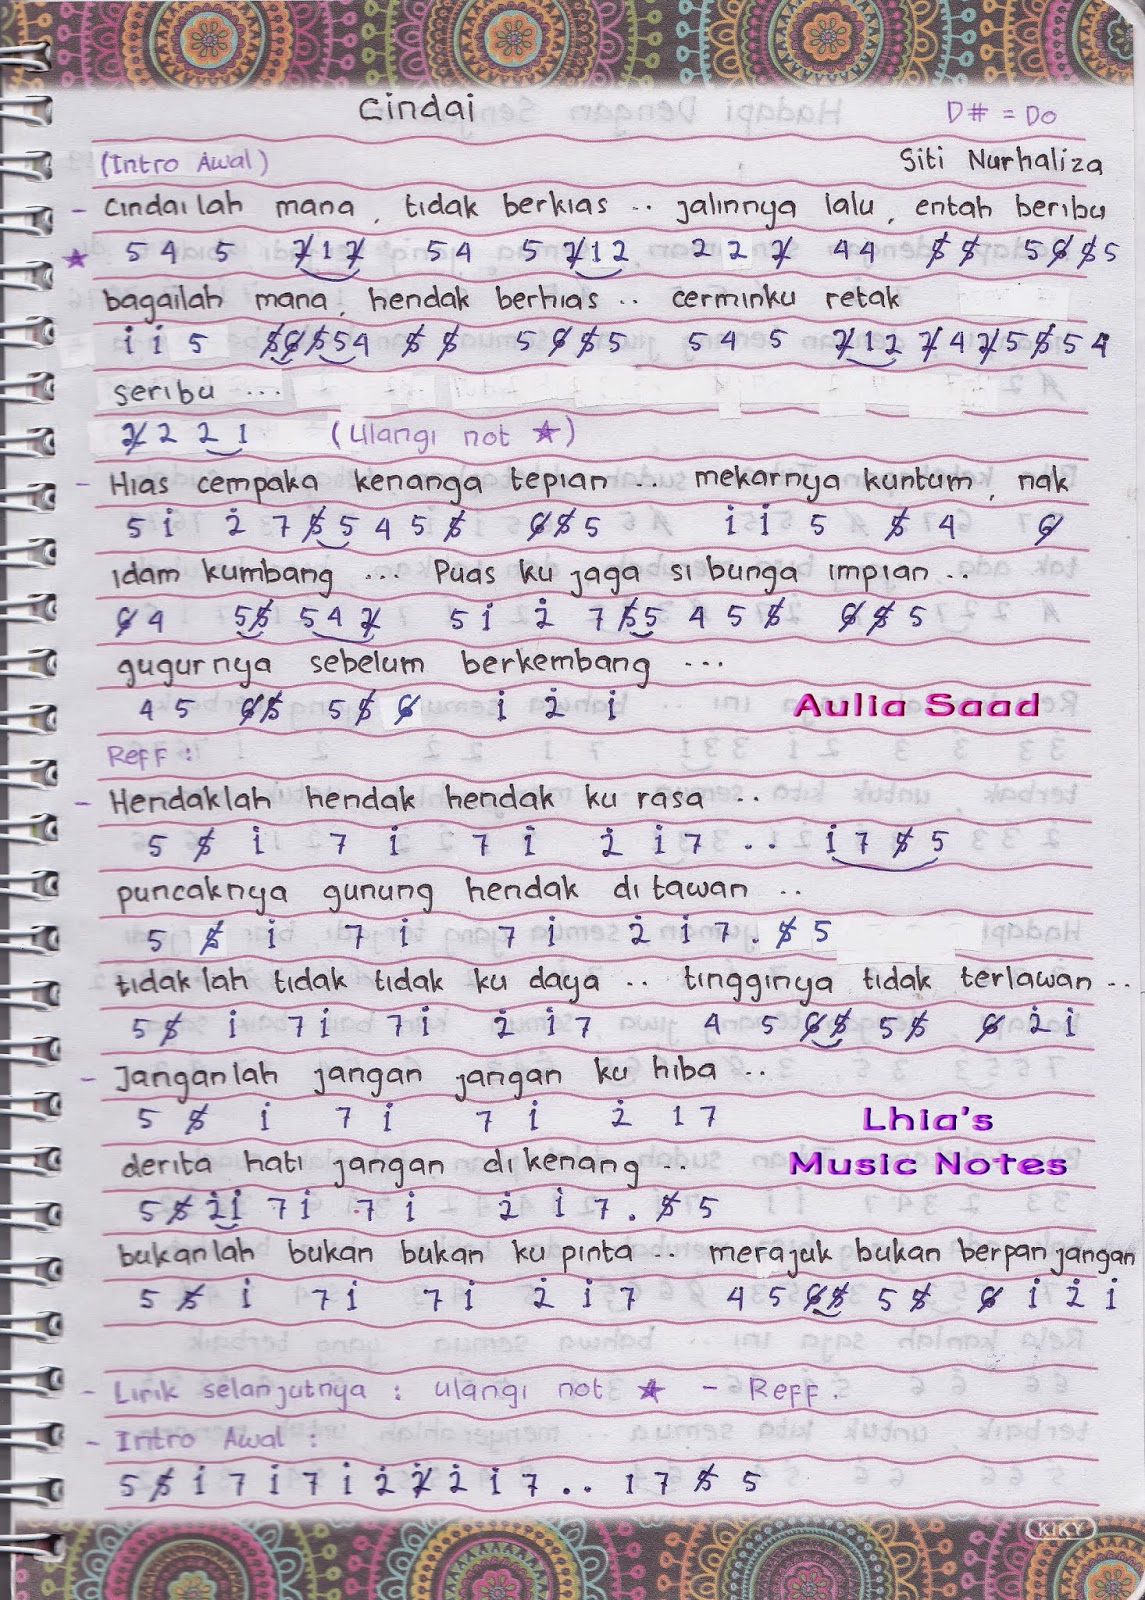 Cindai
D# = Do
(Intro Awal)
Siti Nurhaliza
- Cindailah mana, tidak berkias .. jalinnya lalu, entah beribu
★ 5 4 5 2̸ 1 2̸ 5 4 5 2̸ 1 2 2 2 2̸ 4 4 5̸ 5̸ 5 6̸ 5̸ 5
bagailah mana, hendak berhias .. cerminku retak
i̇ i̇ 5 5̸ 6̸ 5̸ 5 4 5̸ 5̸ 5 6̸ 5̸ 5 5 4 5 2̸ 1 2 2̸ 4 2̸ 5 5̸ 5 4
seribu ...
2̸ 2 2 1 (Ulangi not ★)
- Hias cempaka kenanga tepian ... mekarnya kuntum, nak
5 1̇ 2̇ 7 5̸ 5 4 5 5̸ 6̸ 5̸ 5 1̇ 1̇ 5 5̸ 4 6̸
idam kumbang ... Puas ku jaga si bunga impian ..
6̸ 4 5 5̸ 5 4 2̸ 5 1̇ 2̇ 7 5̸ 5 4 5 5̸ 6̸ 5̸ 5
gugurnya sebelum berkembang ...
4 5 6̸ 5̸ 5 5̸ 6̸ 1̇ 2̇ 1̇
Aulia Saad
Reff :
- Hendaklah hendak hendak ku rasa ..
5 5̸ 1̇ 7 1̇ 7 1̇ 2̇ 1̇ 7 .. 1̇ 7 5̸ 5
puncaknya gunung hendak ditawan ..
5 5̸ 1̇ 7 1̇ 7 1̇ 2̇ 1̇ 7 . 5̸ 5
tidaklah tidak tidak ku daya .. tingginya tidak terlawan ..
5 5̸ 1̇ 7 1̇ 7 1̇ 2̇ 1̇ 7 4 5 6̸ 5̸ 5 5̸ 6̸ 2̇ 1̇
- Janganlah jangan jangan ku hiba ..
5 5̸ 1̇ 7 1̇ 7 1̇ 2̇ 1 7
Lhia's
derita hati jangan dikenang ..
Music Notes
5 5̸ 2̇ 1̇ 7 1̇ 7 1̇ 2̇ 1̇ 7 . 5̸ 5
bukanlah bukan bukan ku pinta .. merajuk bukan berpanjangan
5 5̸ 1̇ 7 1̇ 7 1̇ 2̇ 1̇ 7 4 5 6̸ 5̸ 5 5̸ 6̸ 1̇ 2̇ 1̇
- Lirik selanjutnya : ulangi not ★ - Reff.
- Intro Awal :
5 5̸ 1̇ 7 1̇ 7 1̇ 2̇ 2̸̇ 2̇ 1̇ 7 .. 1 7 5̸ 5
KIKY